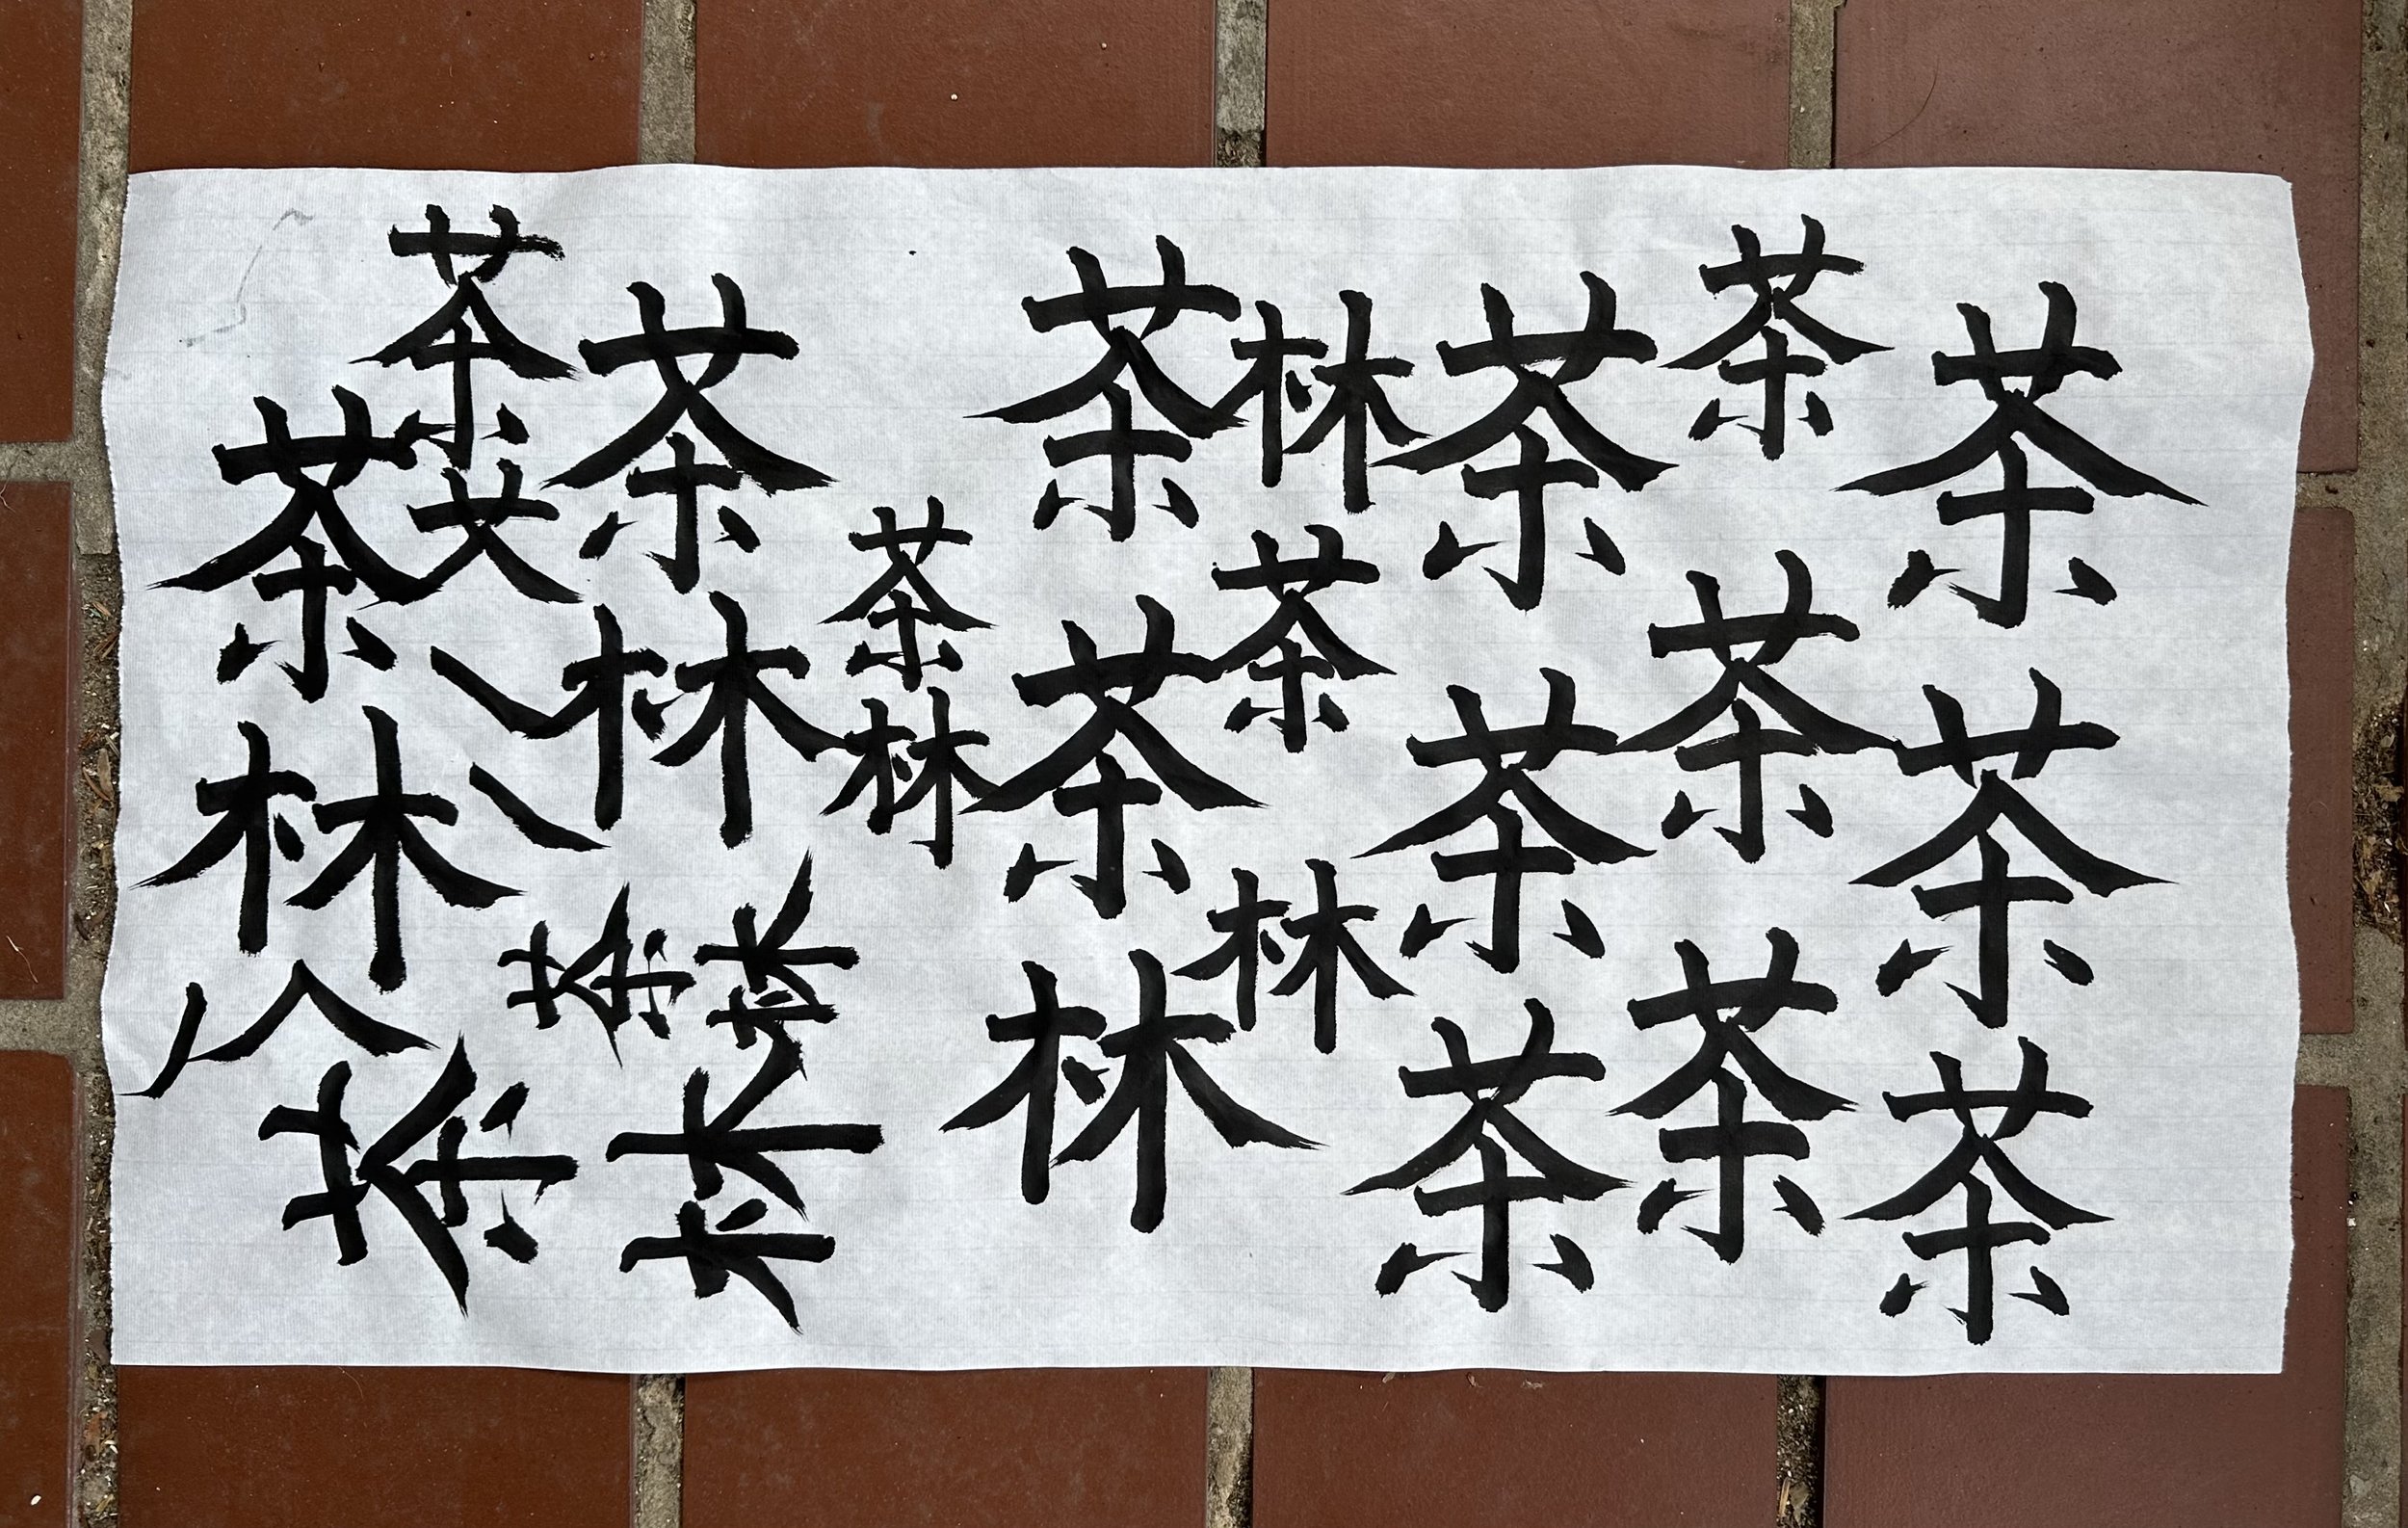 茶茶茶
茶茶茶
茶茶茶
林茶林
茶茶林
茶林
茶林
茶
茶林
茶林
茶林